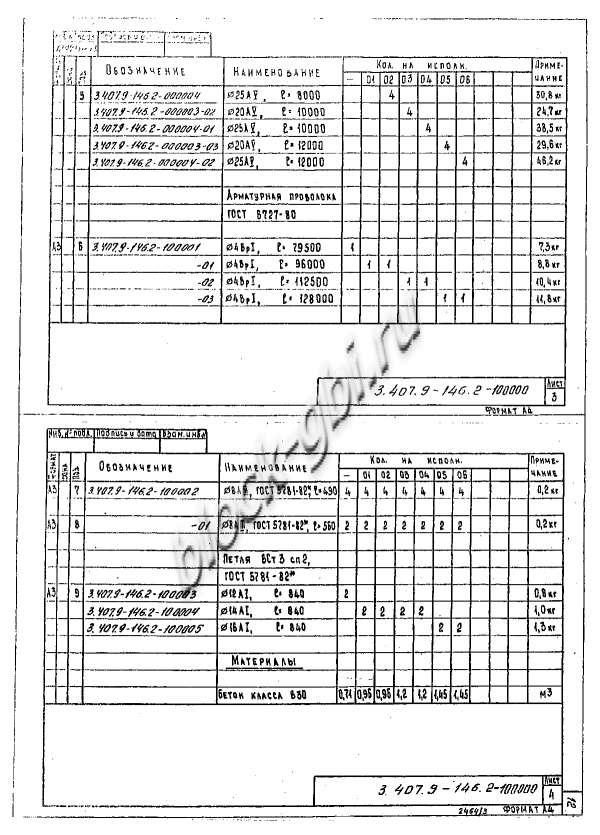 Кол. на исполн. Приме-
Обозначение Наименование – 01 02 03 04 05 06 чание
5 3.407.9-146.2-000004 ø25АV, ℓ= 8000 4 30,8 кг
3.407.9-146.2-000003-02 ø20АV, ℓ= 10000 4 24,7 кг
3.407.9-146.2-000004-01 ø25АV, ℓ= 10000 4 38,5 кг
3.407.9-146.2-000003-03 ø20АV, ℓ= 12000 4 29,6 кг
3.407.9-146.2-000004-02 ø25АV, ℓ= 12000 4 46,2 кг
Арматурная проволока
ГОСТ 6727-80
А3 6 3.407.9-146.2-100001 ø4ВрI, ℓ= 79500 1 7,3 кг
-01 ø4ВрI, ℓ= 96000 1 1 8,8 кг
-02 ø4ВрI, ℓ= 112500 1 1 10,4 кг
-03 ø4ВрI, ℓ= 128000 1 1 11,8 кг
3.407.9-146.2-100000 Лист
3
Формат А4
Инв. № подл. Подпись и дата Взам. инв. №
Формат Зона Поз. Обозначение Наименование Кол. на исполн. Приме-
– 01 02 03 04 05 06 чание
А3 7 3.407.9-146.2-100002 ø8АIII, ГОСТ 5781-82*, ℓ=490 4 4 4 4 4 4 4 0,2 кг
А3 8 -01 ø8АIII, ГОСТ 5781-82*, ℓ=560 2 2 2 2 2 2 2 0,2 кг
Петля ВСт3 сп2,
ГОСТ 5781-82*
А3 9 3.407.9-146.2-100003 ø12АI, ℓ= 840 2 0,8 кг
3.407.9-146.2-100004 ø14АI, ℓ= 840 2 2 2 2 1,0 кг
3.407.9-146.2-100005 ø16АI, ℓ= 840 2 2 1,3 кг
Материалы
Бетон класса В30 0,71 0,95 0,95 1,2 1,2 1,45 1,45 м3
3.407.9-146.2-100000 Лист
4
2464/3 Формат А4
block-gbi.ru